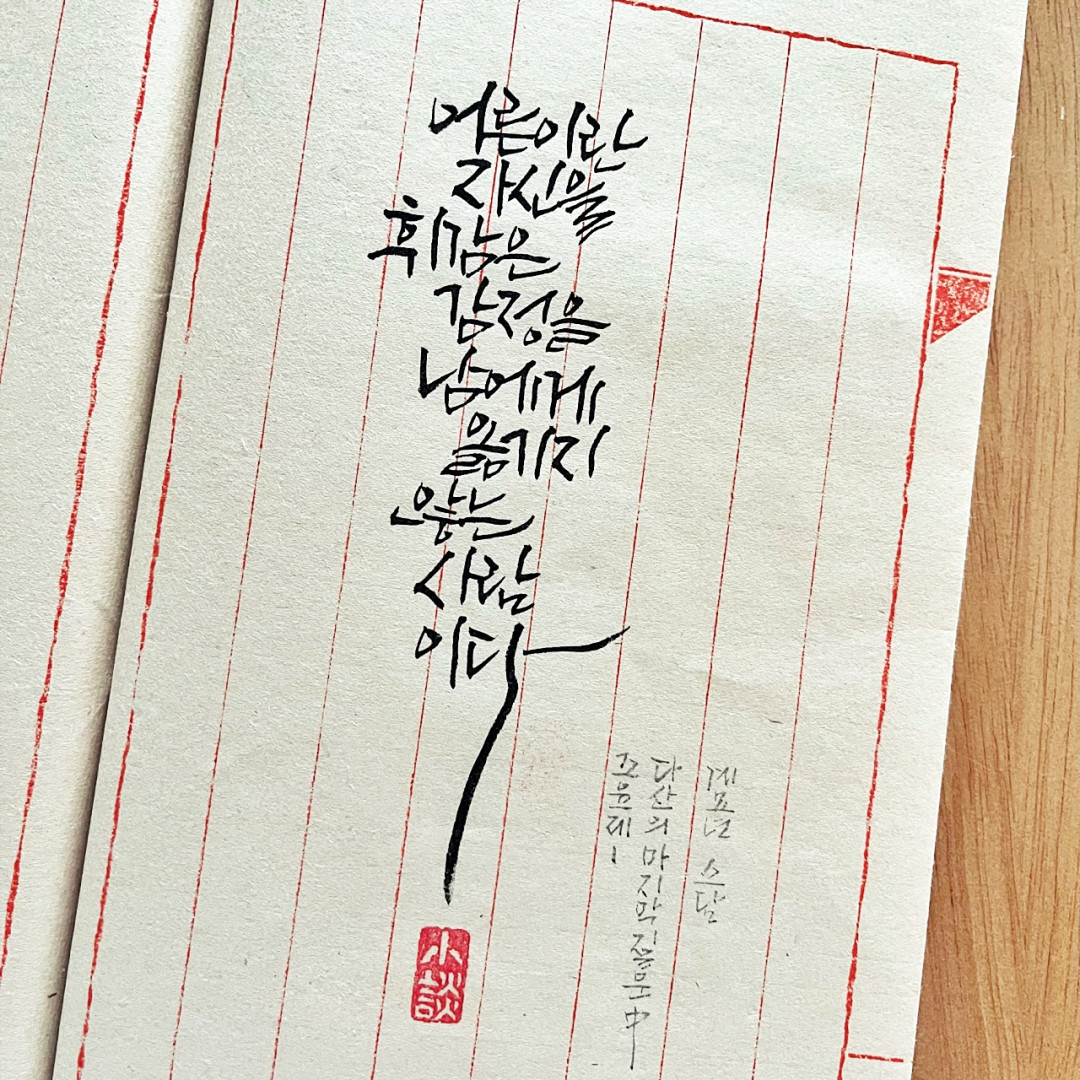 어른이란
자신을
휘감은
감정을
남에게
옮기지
않는
사람
이다
조윤제
다산의 마지막 질문 中
계묘년 소담
小談